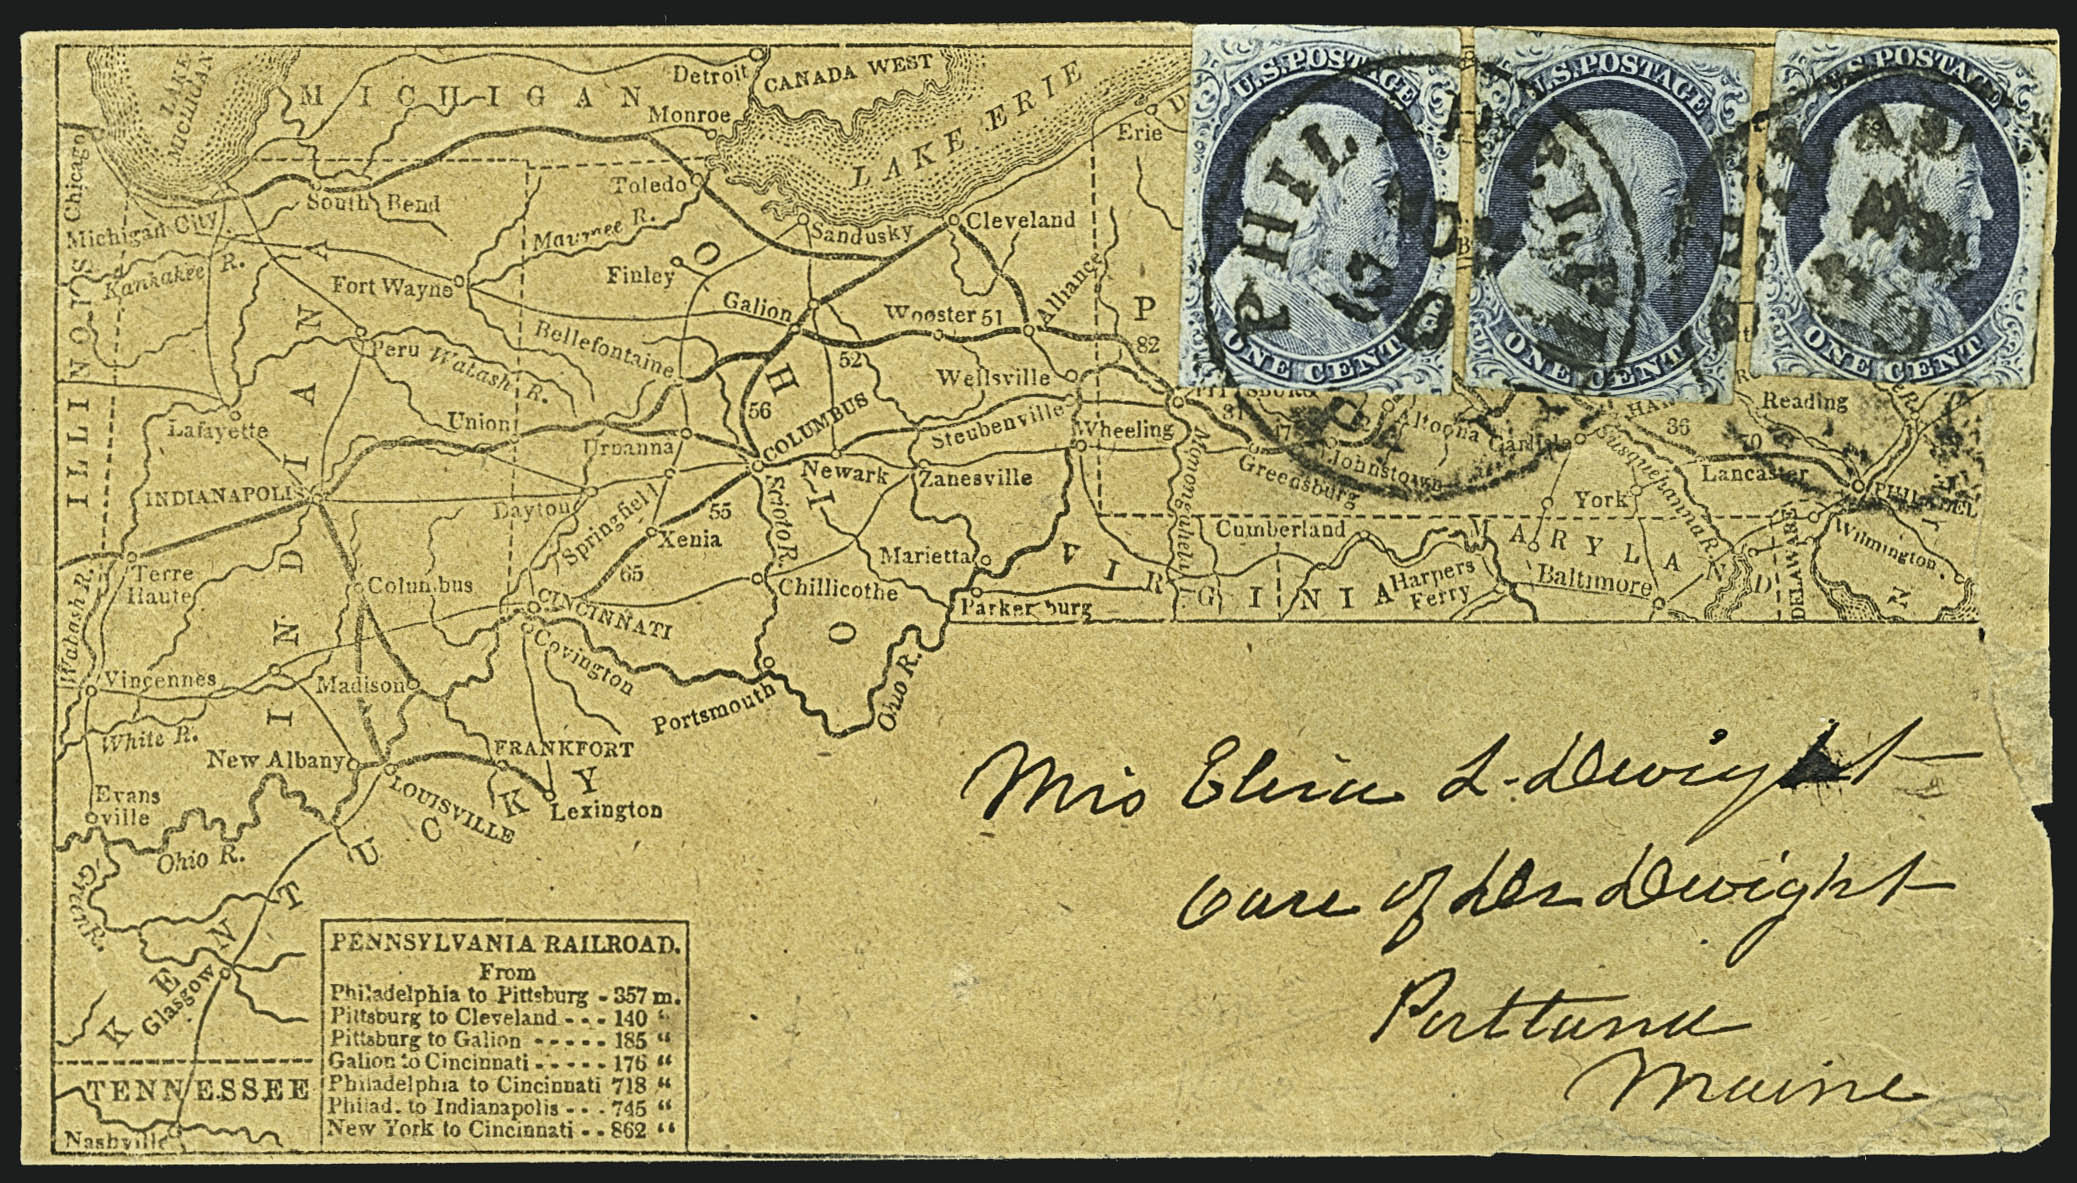 LAKE MICHIGAN
MICHIGAN
Detroit
CANADA WEST
Monroe
LAKE ERIE
Erie
Chicago
Toledo
South Bend
Michigan City
Kankakee R.
Maumee R.
Sandusky
Cleveland
Finley
Fort Wayne
Galion
Wooster 51
Alliance
P
82
ILLINOIS
INDIANA
OHIO
Peru
Wabash R.
Bellefontaine
52
Wellsville
56
COLUMBUS
Steubenville
Wheeling
Lafayette
Union
Urbanna
Newark
Zanesville
INDIANAPOLIS
Dayton
Springfield
55
Xenia
Scioto R.
Marietta
65
Terre Haute
Columbus
CINCINNATI
Chillicothe
Parkersburg
Wabash R.
Covington
Vincennes
Madison
Portsmouth
Ohio R.
White R.
New Albany
FRANKFORT
LOUISVILLE
Lexington
KENTUCKY
Evansville
Ohio R.
Green R.
Glasgow
TENNESSEE
Nashville
PITTSBURG
31
Altoona
Carlisle
HAR
36
Reading
Greensburg
Johnstown
70
Lancaster
PHILADEL
Monongahela
Susquehanna R.
York
Cumberland
MARYLAND
Wilmington
VIRGINIA
Harpers Ferry
Baltimore
DELAWARE
U.S. POSTAGE
ONE CENT
U.S. POSTAGE
ONE CENT
U.S. POSTAGE
ONE CENT
PHIL
PENNSYLVANIA RAILROAD.
From
Philadelphia to Pittsburg - 357 m.
Pittsburg to Cleveland - - - 140 "
Pittsburg to Galion - - - - - 185 "
Galion to Cincinnati - - - - - 176 "
Philadelphia to Cincinnati 718 "
Philad. to Indianapolis - - - 745 "
New York to Cincinnati - - 862 "
Mris Eliza L. Dwight
Care of Dr Dwight
Portland
Maine